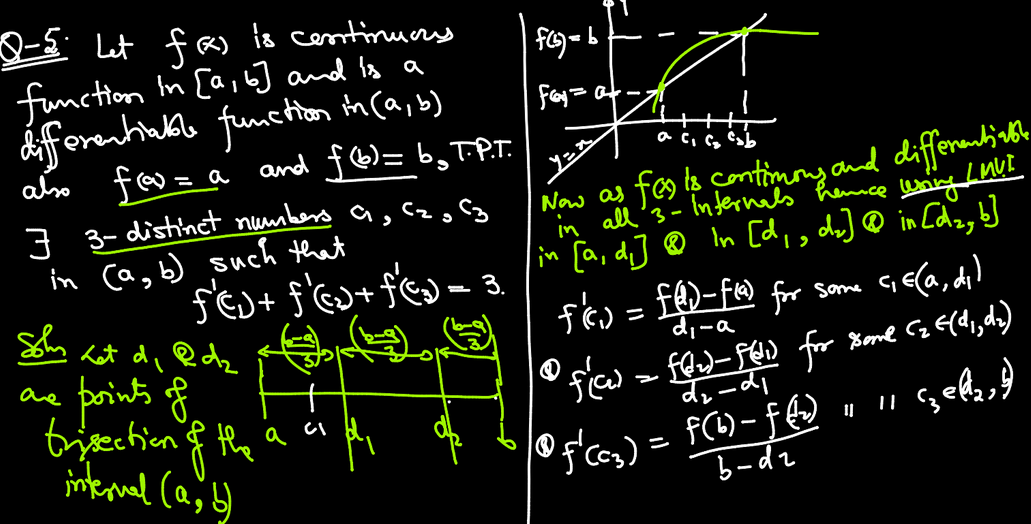 Q-5. Let f(x) is continuous
function in [a,b] and is a
differentiable function in (a,b)
also f(a) = a and f(b) = b, T.P.T.
∃ 3-distinct numbers c₁, c₂, c₃
in (a,b) such that
f'(c₁) + f'(c₂) + f'(c₃) = 3.
Soln Let d₁ & d₂
are points of
trisection of the
interval (a,b)
(b-a/3) (b-a/3) (b-a/3)
a c₁ d₁ d₂ b
y
f(b) = b
f(a) = a
a c₁ c₂ c₃ b
y=x
Now as f(x) is continuous and differentiable
in all 3-Intervals hence using LMVT
in [a,d₁] & In [d₁,d₂] & in [d₂,b]
f'(c₁) = f(d₁)-f(a) / d₁-a for some c₁ ∈ (a,d₁)
& f'(c₂) = f(d₂)-f(d₁) / d₂-d₁ for some c₂ ∈ (d₁,d₂)
& f'(c₃) = f(b)-f(d₂) / b-d₂ " " c₃ ∈ (d₂,b)